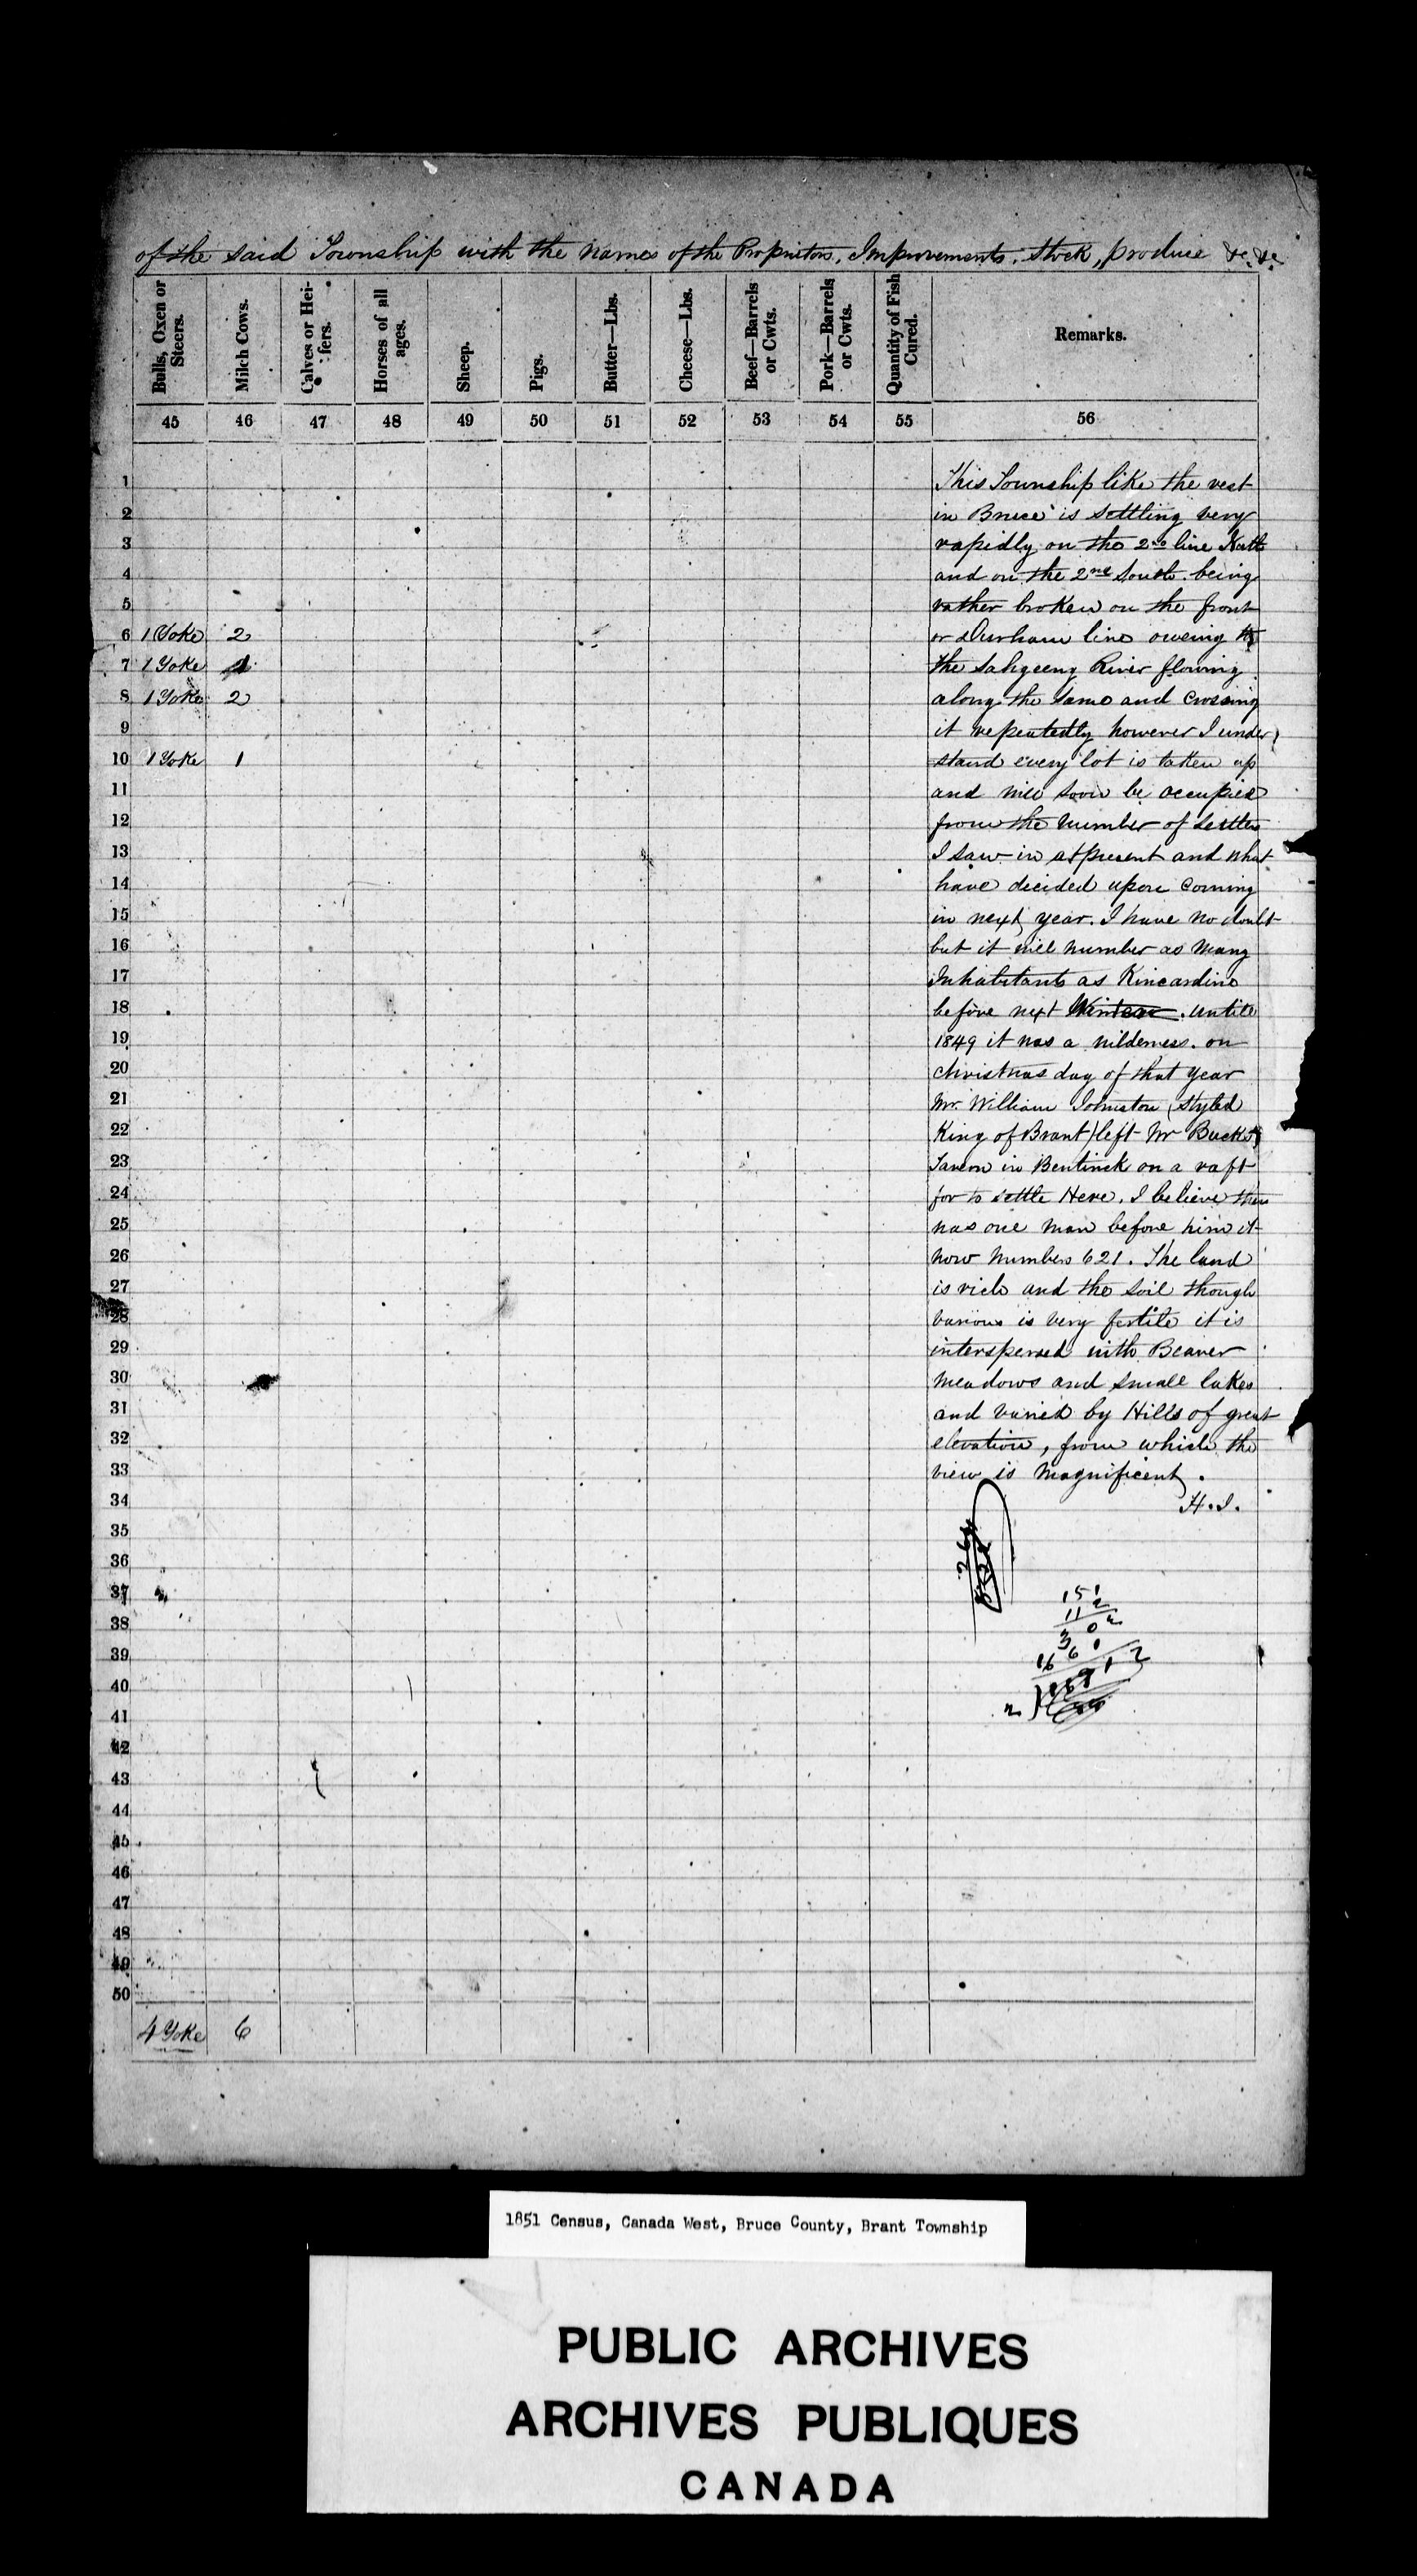 of the said Township with the names of the Proprietors, Improvements, Stock, produce &c. &c.
Bulls, Oxen or Steers.
Milch Cows.
Calves or Heifers.
Horses of all ages.
Sheep.
Pigs.
Butter—Lbs.
Cheese—Lbs.
Beef—Barrels or Cwts.
Pork—Barrels or Cwts.
Quantity of Fish Cured.
Remarks.
45 46 47 48 49 50 51 52 53 54 55 56
1 This Township like the rest
2 in Bruce is settling very
3 rapidly on the 2nd line North
4 and on the 2nd South. being
5 rather broken on the front
6 1 Yoke 2 or Durham line oweing to
7 1 Yoke 1 the Sahgeeng River flowing
8 1 Yoke 2 along the same and crossing
9 it repeatedly however I under
10 1 Yoke 1 stand every lot is taken up
11 and will soon be occupied
12 from the number of settlers
13 I saw in at present and what
14 have decided upon coming
15 in next year. I have no doubt
16 but it will number as many
17 Inhabitants as Kincardine
18 before next Winter. Untill
19 1849 it was a wilderness. on
20 christmas day of that year
21 Mr. William Johnston (styled
22 King of Brant) left Mr Buck's
23 Tavern in Bentinck on a raft
24 for to settle Here. I believe there
25 was one man before him it
26 now numbers 621. The land
27 is rich and the soil though
28 various is very fertile it is
29 interspersed with Beaver
30 meadows and small lakes
31 and varied by Hills of great
32 elevation, from which the
33 view is magnificent.
34 H. I.
35
36
37 151
38 112
302
39
40
41
42
43
44
45
46
47
48
49
50
4 Yoke 6
1851 Census, Canada West, Bruce County, Brant Township
PUBLIC ARCHIVES
ARCHIVES PUBLIQUES
CANADA